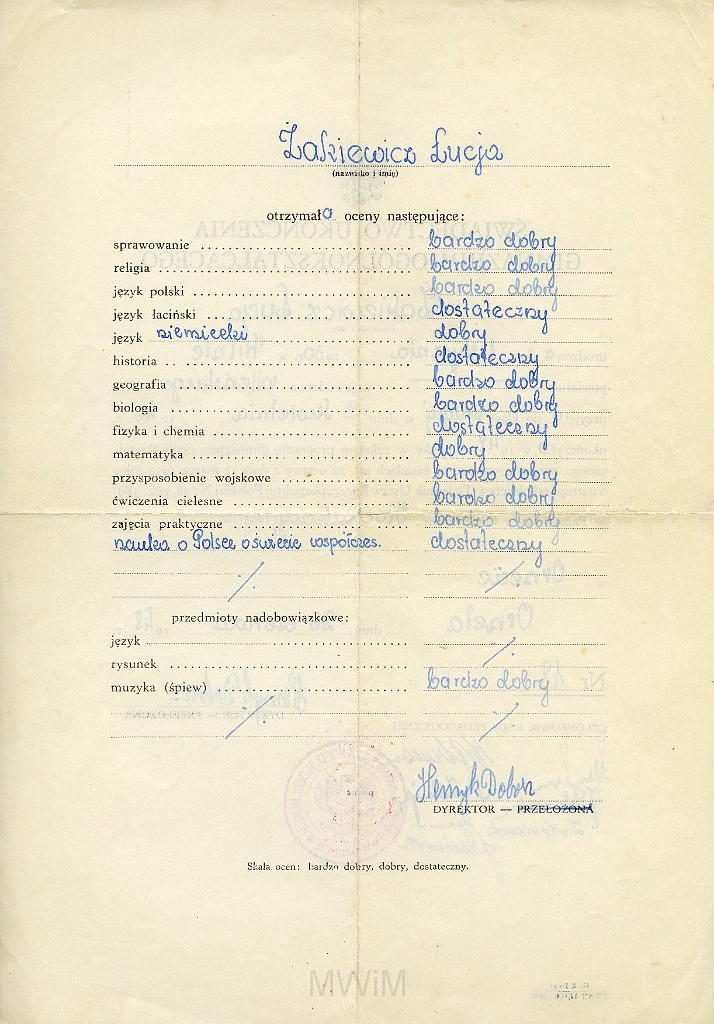 Żakiewicz Łucja
(nazwisko i imię)
otrzymała oceny następujące:
sprawowanie bardzo dobry
religia bardzo dobry
język polski bardzo dobry
język łaciński dostateczny
język niemiecki dobry
historia dostateczny
geografia bardzo dobry
biologia bardzo dobry
fizyka i chemia dostateczny
matematyka dobry
przysposobienie wojskowe bardzo dobry
ćwiczenia cielesne bardzo dobry
zajęcia praktyczne bardzo dobry
nauka o Polsce o świecie współczes. dostateczny
przedmioty nadobowiązkowe:
język
rysunek
muzyka (śpiew) bardzo dobry
Henryk Dobosz
DYREKTOR — PRZEŁOŻONA
Skala ocen: bardzo dobry, dobry, dostateczny.
MWiM